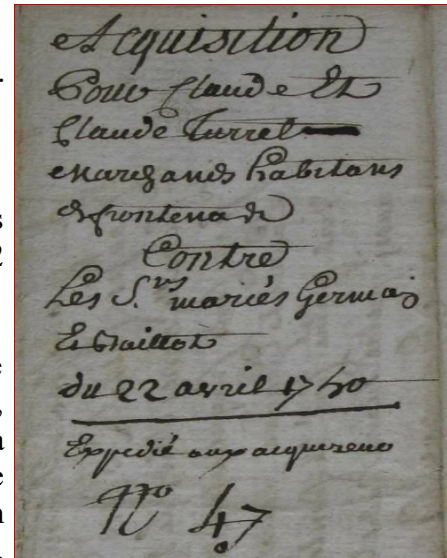 Acquisition
Pour Claude Et
Claude Turrel
Marchands habitans
de frontenade
Contre
Les S.rs mariés Germain
Et Baillot
du 22 avril 1740
Expedié aux acquereurs
No 47